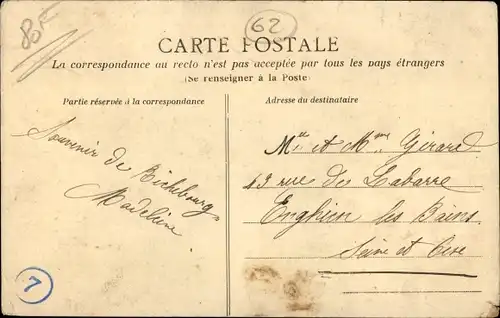 80F
62
CARTE POSTALE
La correspondance au recto n'est pas acceptée par tous les pays étrangers
(Se renseigner à la Poste)
Partie réservée à la correspondance
Adresse du destinataire
Souvenir de Richebourg
Madeleine
et Mme Girard
13 rue de Labarre
Enghien les Bains
Seine et Oise
7